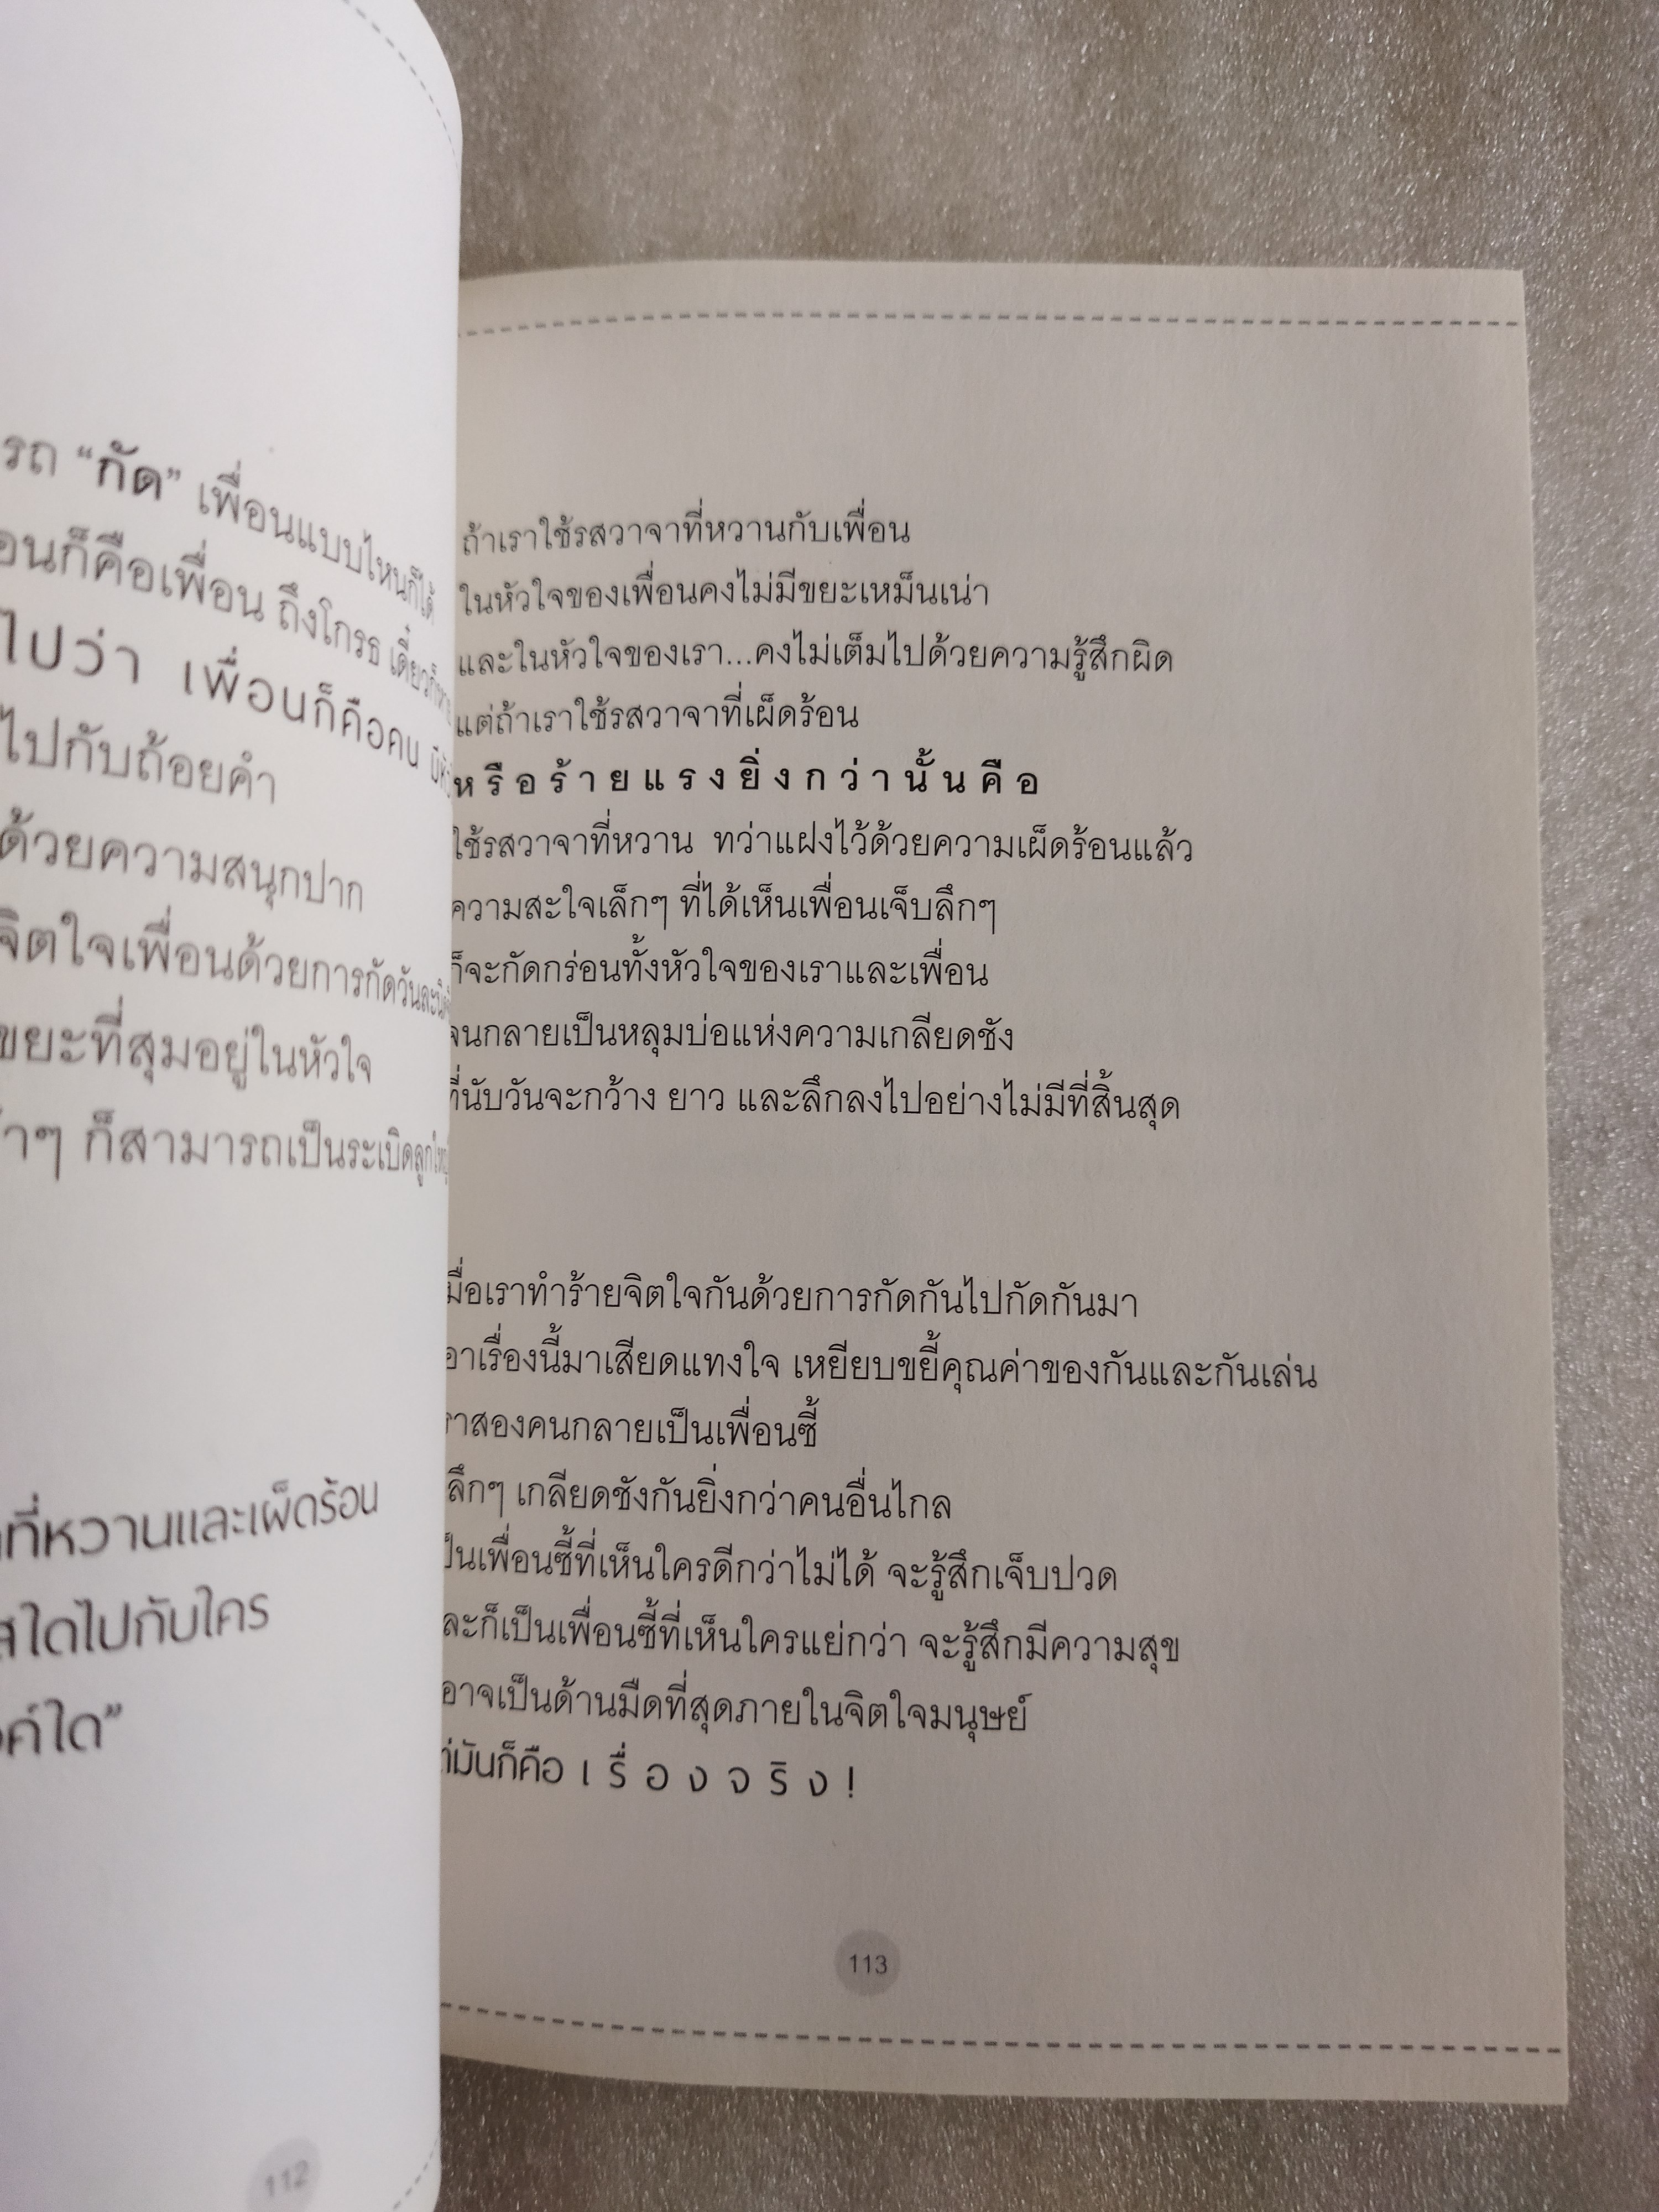 "กัด" เพื่อนแบบไหนก็ได้
ก็คือเพื่อน ถึงโกรธ
ไปว่า เพื่อนก็คือคน
ไปกับถ้อยคำ
ด้วยความสนุกปาก
จิตใจเพื่อนด้วยการกัดวันละนิด
ขยะที่สุมอยู่ในหัวใจ
ก็สามารถเป็นระเบิดลูกใหญ่
ที่หวานและเผ็ดร้อน
ใดไปกับใคร
112
ถ้าเราใช้รสวาจาที่หวานกับเพื่อน
ในหัวใจของเพื่อนคงไม่มีขยะเหม็นเน่า
และในหัวใจของเรา...คงไม่เต็มไปด้วยความรู้สึกผิด
แต่ถ้าเราใช้รสวาจาที่เผ็ดร้อน
ห รื อ ร้ า ย แ ร ง ยิ่ ง ก ว่ า นั้ น คื อ
ใช้รสวาจาที่หวาน ทว่าแฝงไว้ด้วยความเผ็ดร้อนแล้ว
ความสะใจเล็กๆ ที่ได้เห็นเพื่อนเจ็บลึกๆ
ก็จะกัดกร่อนทั้งหัวใจของเราและเพื่อน
จนกลายเป็นหลุมบ่อแห่งความเกลียดชัง
ที่นับวันจะกว้าง ยาว และลึกลงไปอย่างไม่มีที่สิ้นสุด
มื่อเราทำร้ายจิตใจกันด้วยการกัดกันไปกัดกันมา
อาเรื่องนี้มาเสียดแทงใจ เหยียบขยี้คุณค่าของกันและกันเล่น
ราสองคนกลายเป็นเพื่อนซี้
ลึกๆ เกลียดชังกันยิ่งกว่าคนอื่นไกล
ป็นเพื่อนซี้ที่เห็นใครดีกว่าไม่ได้ จะรู้สึกเจ็บปวด
ละก็เป็นเพื่อนซี้ที่เห็นใครแย่กว่า จะรู้สึกมีความสุข
อาจเป็นด้านมืดที่สุดภายในจิตใจมนุษย์
ต่มันก็คือ เ รื่ อ ง จ ริ ง !
113